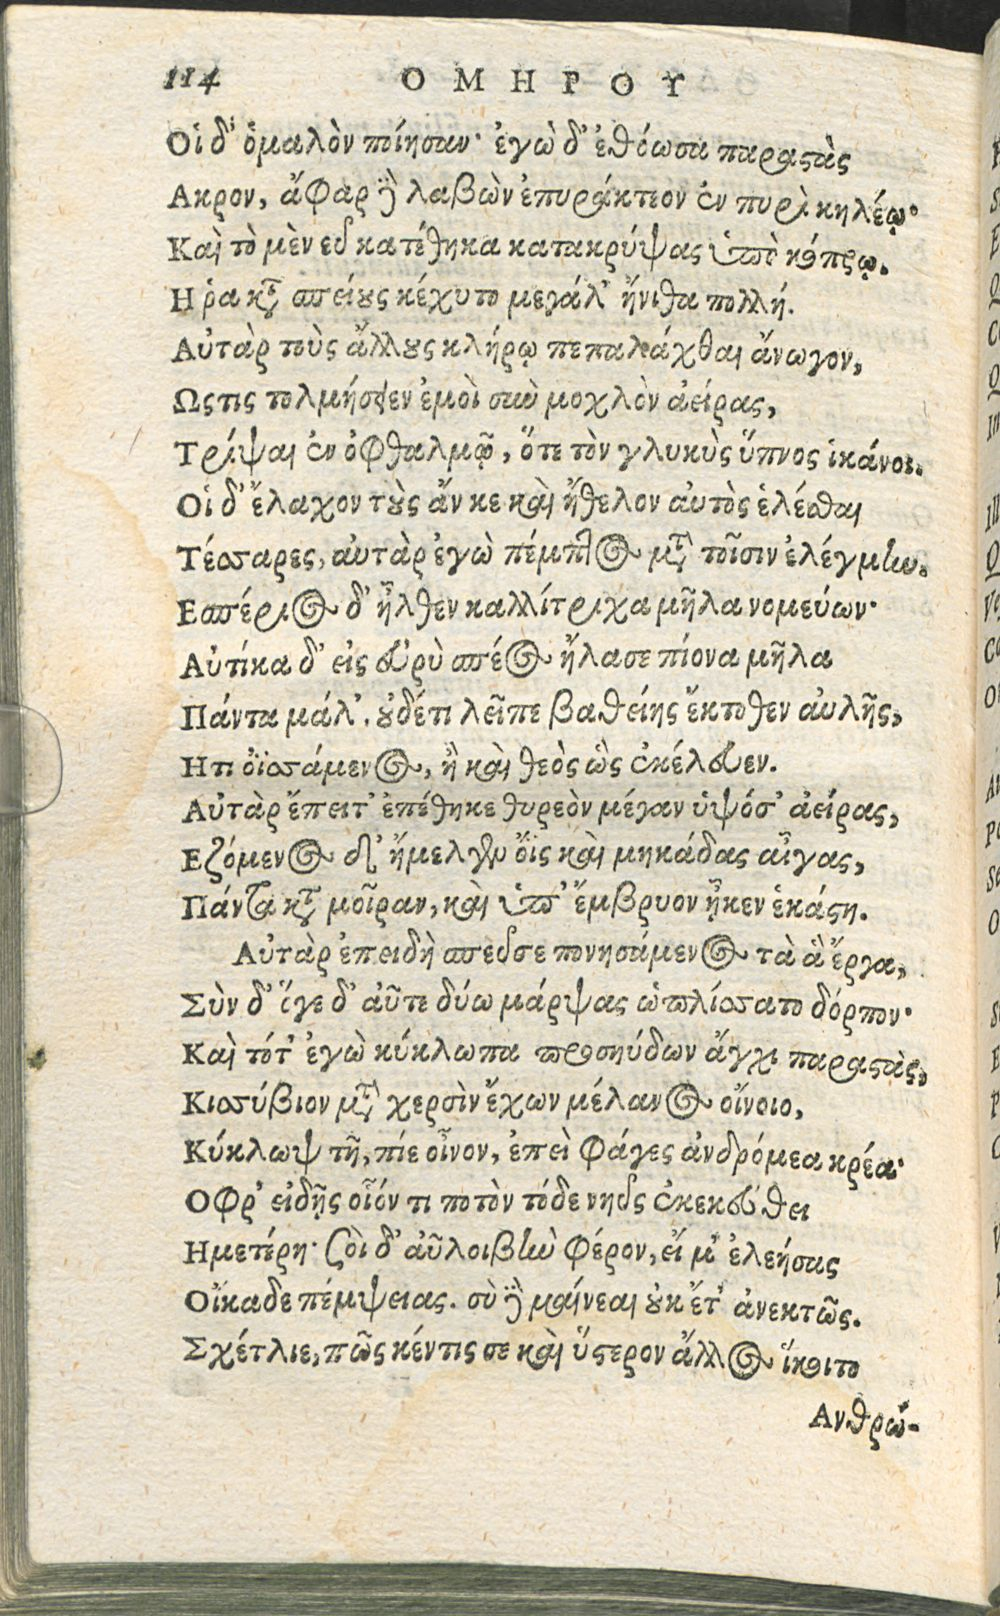 114 ΟΜΗΡΟΥ
Οἱ δ' ὁμαλὸν ποίησαν· ἐγὼ δ' ἐθόωσα παραστὰς
Ακρον, ἄφαρ δὲ λαβὼν ἐπυράκτεον ἐν πυρὶ κηλέῳ·
Καὶ τὸ μὲν εὖ κατέθηκα κατακρύψας ὑπὸ κόπρῳ.
Η ῥα κατὰ σπείους κέχυτο μεγάλ' ἤνιθα πολλή.
Αὐτὰρ τοὺς ἄλλους κλήρῳ πεπαλάχθαι ἄνωγον,
Ωςτις τολμήσειεν ἐμοὶ σὺν μοχλὸν ἀείρας,
Τρίψαι ἐν ὀφθαλμῷ, ὅτε τὸν γλυκὺς ὕπνος ἱκάνοι.
Οἱ δ' ἔλαχον τοὺς ἄν κε καὶ ἤθελον αὐτὸς ἑλέσθαι
Τέσσαρες, αὐτὰρ ἐγὼ πέμπτος μετὰ τοῖσιν ἐλέγμην.
Εσπέριος δ' ἦλθεν καλλίτριχα μῆλα νομεύων·
Αὐτίκα δ' εἰς εὐρὺ σπέος ἤλασε πίονα μῆλα
Πάντα μάλ'. οὐδέτι λεῖπε βαθείης ἔκτοθεν αὐλῆς,
Ητι ὀϊσσάμενος, ἢ καὶ θεὸς ὣς ἐκέλευεν.
Αὐτὰρ ἔπειτ' ἐπέθηκε θυρεὸν μέγαν ὑψόσ' ἀείρας,
Εζόμενος δ' ἤμελγεν ὄϊς καὶ μηκάδας αἶγας,
Πάντα κατὰ μοῖραν, καὶ ὑπ' ἔμβρυον ἧκεν ἑκάστη.
Αὐτὰρ ἐπειδὴ σπεῦσε πονησάμενος τὰ ἃ ἔργα,
Σὺν δ' ὅγε δ' αὖτε δύω μάρψας ὡπλίσσατο δόρπον·
Καὶ τότ' ἐγὼ κύκλωπα προσηύδων ἄγχι παραστὰς,
Κισσύβιον μετὰ χερσὶν ἔχων μέλανος οἴνοιο,
Κύκλωψ τῆ, πίε οἶνον, ἐπεὶ φάγες ἀνδρόμεα κρέα·
Οφρ' εἰδῇς οἷόν τι ποτὸν τόδε νηῦς ἐκεκεύθει
Ημετέρη· σοὶ δ' αὖ λοιβὴν φέρον, εἴ μ' ἐλεήσας
Οἴκαδε πέμψειας. σὺ δὲ μαίνεαι οὐκ ἔτ' ἀνεκτῶς.
Σχέτλιε, πῶς κέντις σε καὶ ὕστερον ἄλλος ἵκοιτο
Ανθρώ-